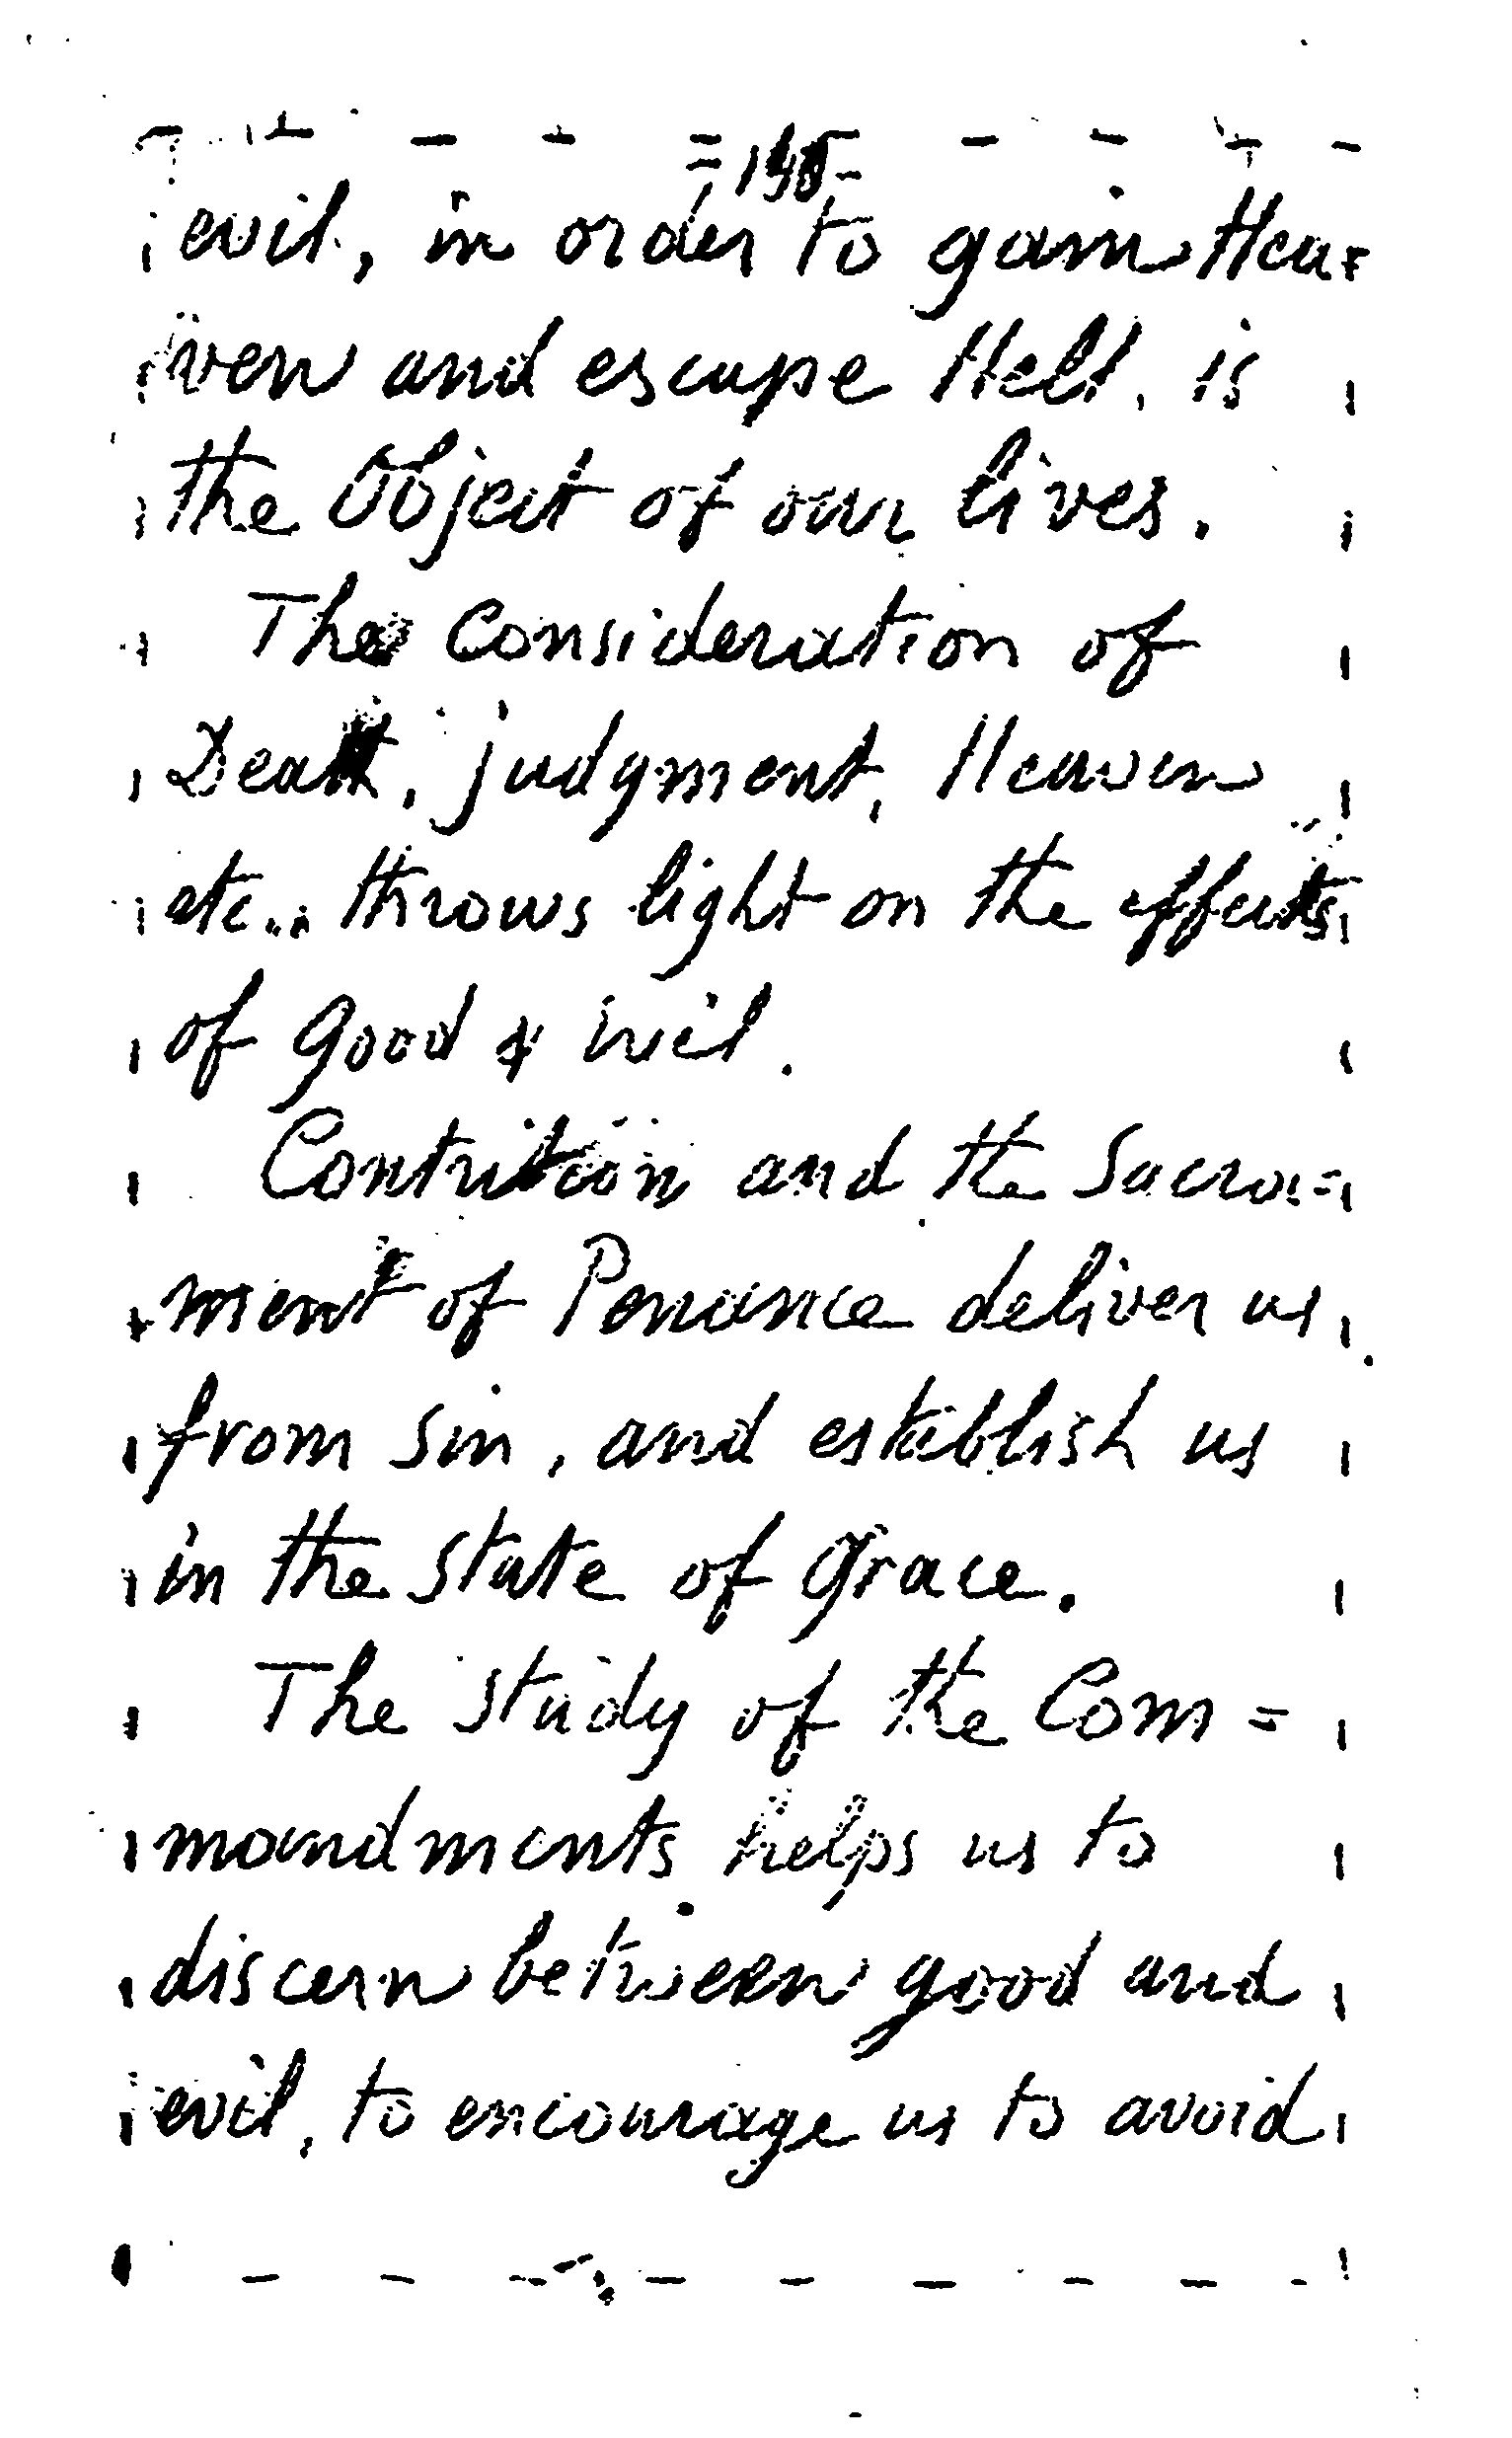 evil, in order to gain Hea=
ven and escape Hell, is
the Object of our lives.
The Consideration of
Death, judgment, Heaven
etc... throws light on the effects
of good & ivel.
Contrition and the Sacra=
ment of Penance deliver us
from sin, and establish us
in the state of grace.
The study of the Com=
mandments helps us to
discern between good and
evil, to encourage us to avoid